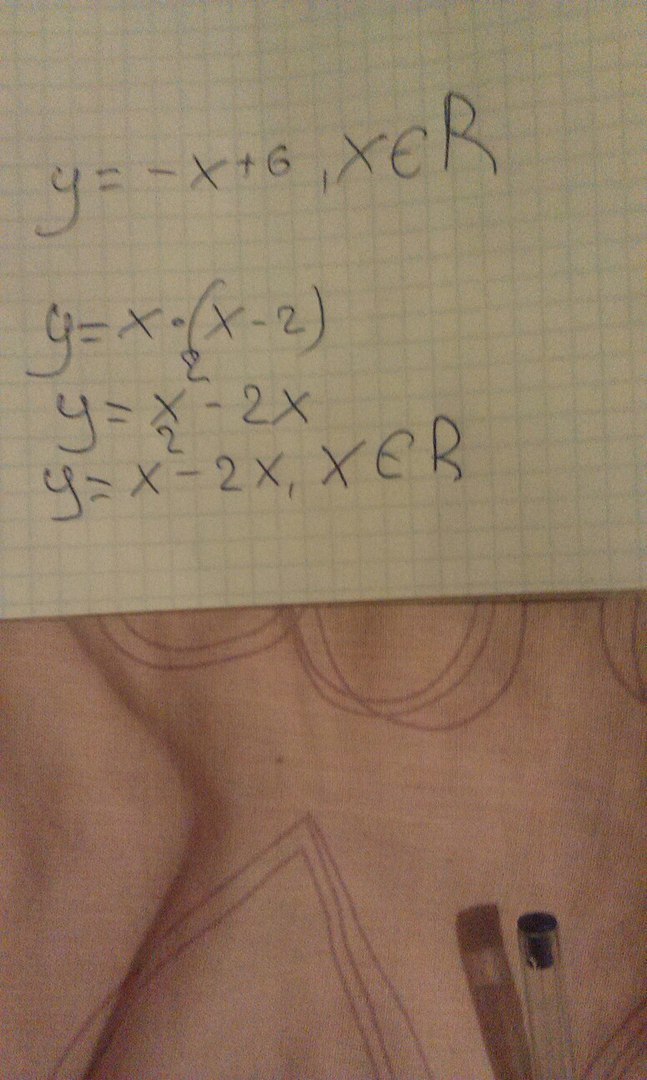 y = -x+6, x∈R
y = x·(x-2)
y = x² - 2x
y = x² - 2x, x∈R